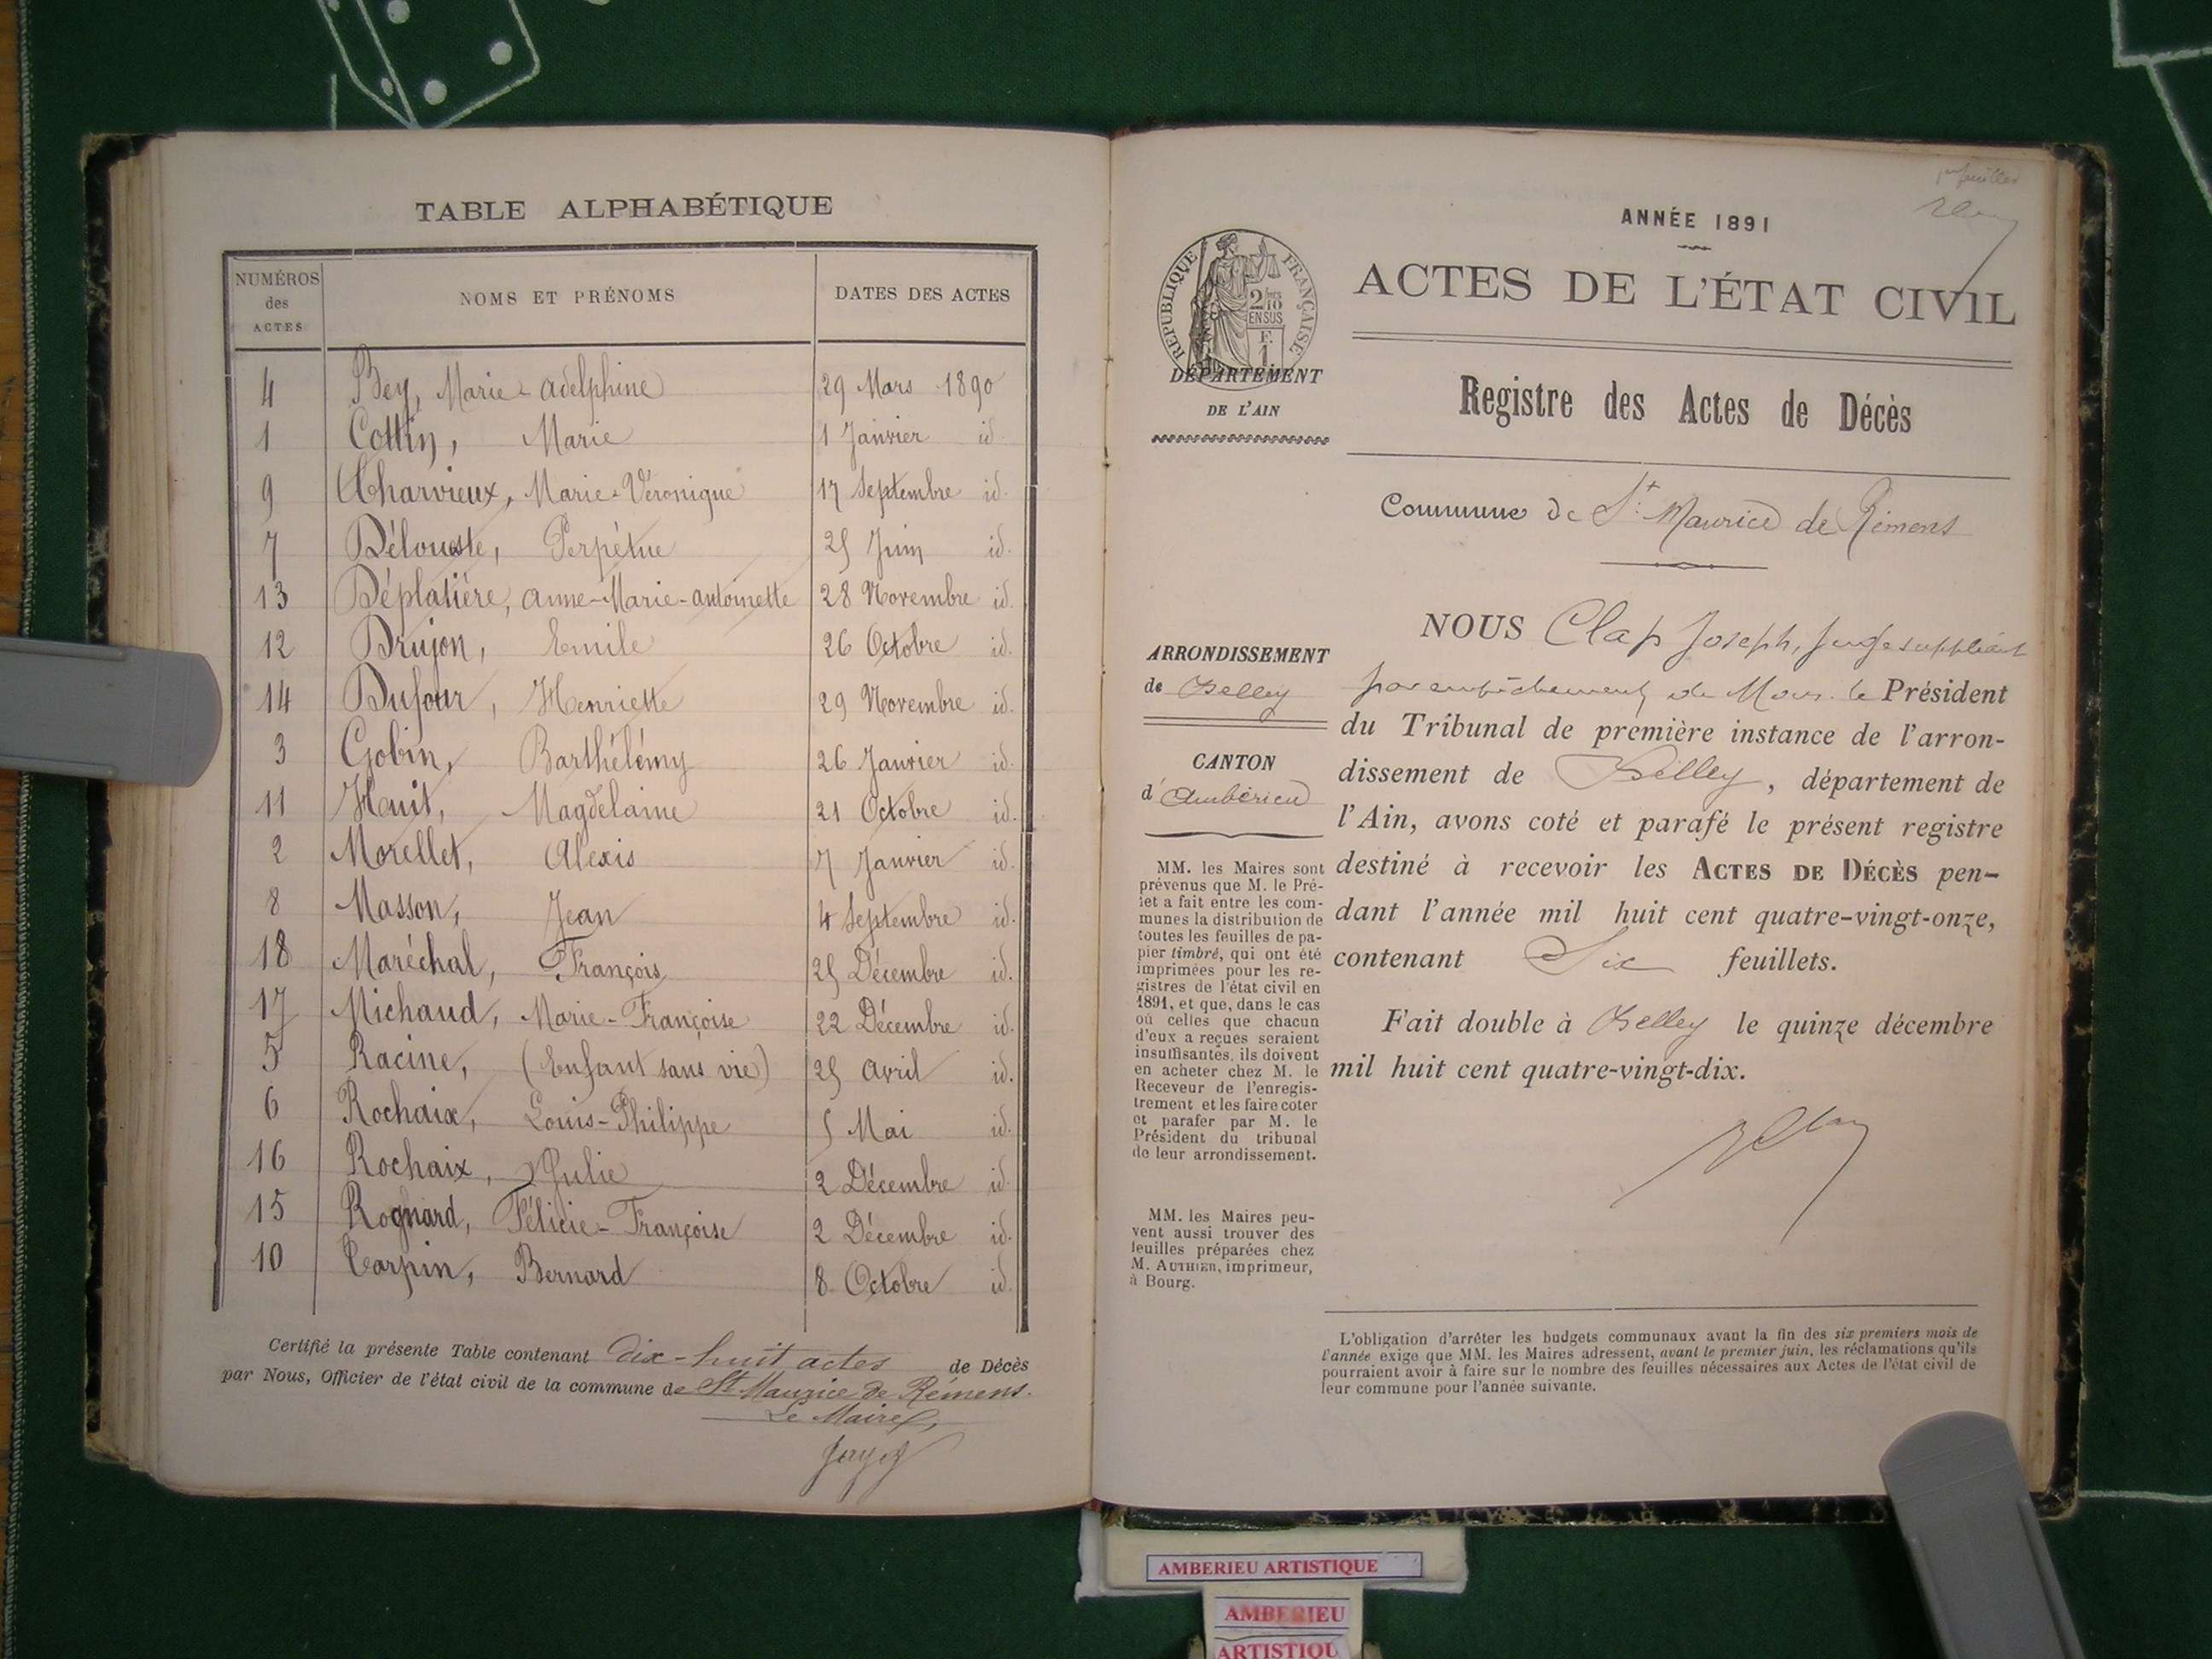 TABLE ALPHABÉTIQUE
NUMÉROS des ACTES
NOMS ET PRÉNOMS
DATES DES ACTES
4 Bey, Marie-Adelphine 29 Mars 1890
1 Cottin, Marie 1 Janvier id.
9 Charvieux, Marie-Véronique 17 Septembre id.
7 Délouste, Perpétue 25 Juin id.
13 Déplatière, Anne-Marie-Antoinette 28 Novembre id.
12 Drujon, Emile 26 Octobre id.
14 Dufour, Henriette 29 Novembre id.
3 Gobin, Barthélémy 26 Janvier id.
11 Huit, Magdelaine 21 Octobre id.
2 Morellet, Alexis 7 Janvier id.
8 Masson, Jean 4 Septembre id.
18 Maréchal, François 25 Décembre id.
17 Michaud, Marie-Françoise 22 Décembre id.
5 Racine, (Enfant sans vie) 25 Avril id.
6 Rochaix, Louis-Philippe 5 Mai id.
16 Rochaix, Julie 2 Décembre id.
15 Rognard, Félicie-Françoise 2 Décembre id.
10 Carpin, Bernard 8 Octobre id.
Certifié la présente Table contenant dix-huit actes de Décès
par Nous, Officier de l'état civil de la commune de St Maurice de Rémens.
Le Maire,
ANNÉE 1891
RÉPUBLIQUE FRANÇAISE
2/10
EN SUS
F.
1.
ACTES DE L'ÉTAT CIVIL
DÉPARTEMENT
DE L'AIN
Registre des Actes de Décès
Commune de St Maurice de Rémens
ARRONDISSEMENT
de Belley
CANTON
d'Ambérieu
MM. les Maires sont
prévenus que M. le Pré-
fet a fait entre les com-
munes la distribution de
toutes les feuilles de pa-
pier timbré, qui ont été
imprimées pour les re-
gistres de l'état civil en
1891, et que, dans le cas
où celles que chacun
d'eux a reçues seraient
insuffisantes, ils doivent
en acheter chez M. le
Receveur de l'enregis-
trement et les faire coter
et parafer par M. le
Président du tribunal
de leur arrondissement.
MM. les Maires peu-
vent aussi trouver des
feuilles préparées chez
M. AUTHIER, imprimeur,
à Bourg.
NOUS Clap Joseph, Juge suppléant
par empêchement de Mons. le Président
du Tribunal de première instance de l'arron-
dissement de Belley, département de
l'Ain, avons coté et parafé le présent registre
destiné à recevoir les ACTES DE DÉCÈS pen-
dant l'année mil huit cent quatre-vingt-onze,
contenant Six feuillets.
Fait double à Belley le quinze décembre
mil huit cent quatre-vingt-dix.
L'obligation d'arrêter les budgets communaux avant la fin des six premiers mois de
l'année exige que MM. les Maires adressent, avant le premier juin, les réclamations qu'ils
pourraient avoir à faire sur le nombre des feuilles nécessaires aux Actes de l'état civil de
leur commune pour l'année suivante.
AMBERIEU ARTISTIQUE
AMBERIEU
ARTISTIQU